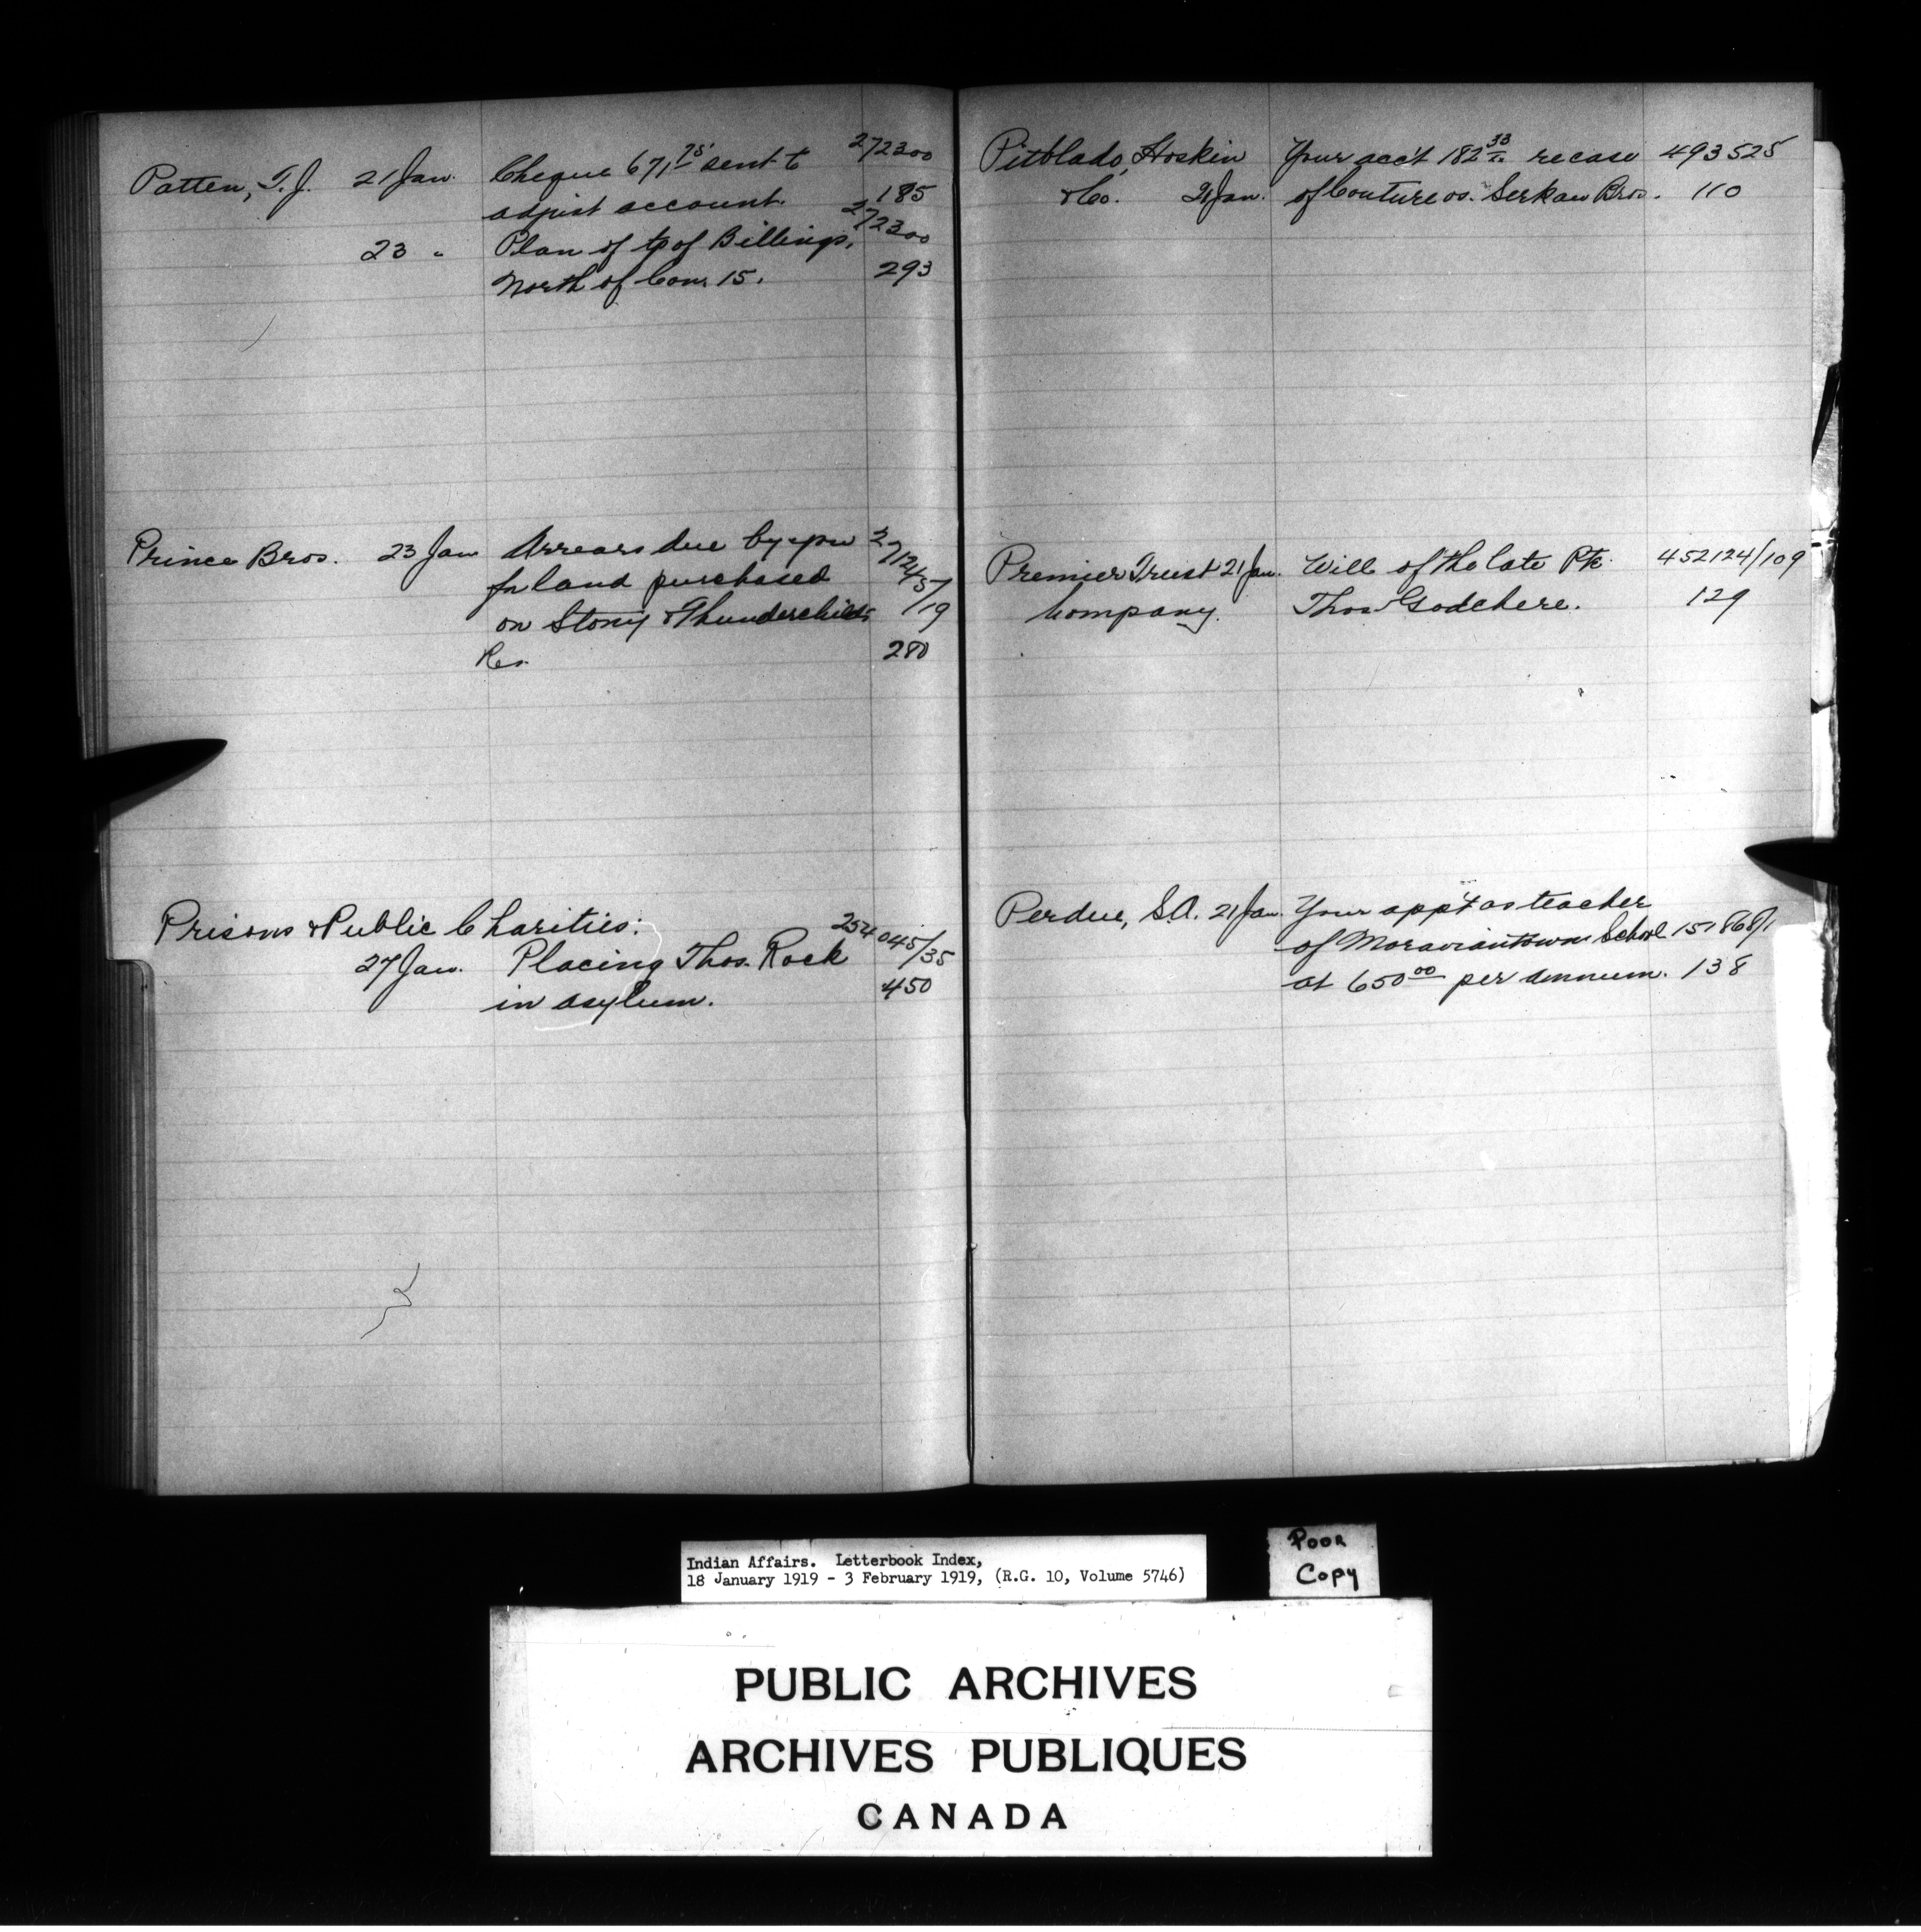 Patten, T. J. 21 Jan. Cheque 671.75 sent to 272300
adjust account. 185
23 " Plan of tp of Billings, 272300
North of Con. 15. 293
Prince Bros. 23 Jan Arrears due by you
for land purchased
on Stony & Thunderchilds /19
Res. 280
Prisons & Public Charities: 254045/35
27 Jan. Placing Thos. Rock
in asylum. 450
Pitblado, Hoskin Your acc't 182.33 re case 493525
& Co. 21 Jan. of Couture vs. Serkau Bros. 110
Premier Trust 21 Jan. Will of the late Pte. 452124/109
Company. Thos Godchere. 129
Perdue, S.A. 21 Jan. Your app't as teacher
of Moraviantown School 151868/1
at 650.00 per annum. 138
Indian Affairs. Letterbook Index,
18 January 1919 - 3 February 1919, (R.G. 10, Volume 5746)
POOR
COPY
PUBLIC ARCHIVES
ARCHIVES PUBLIQUES
CANADA